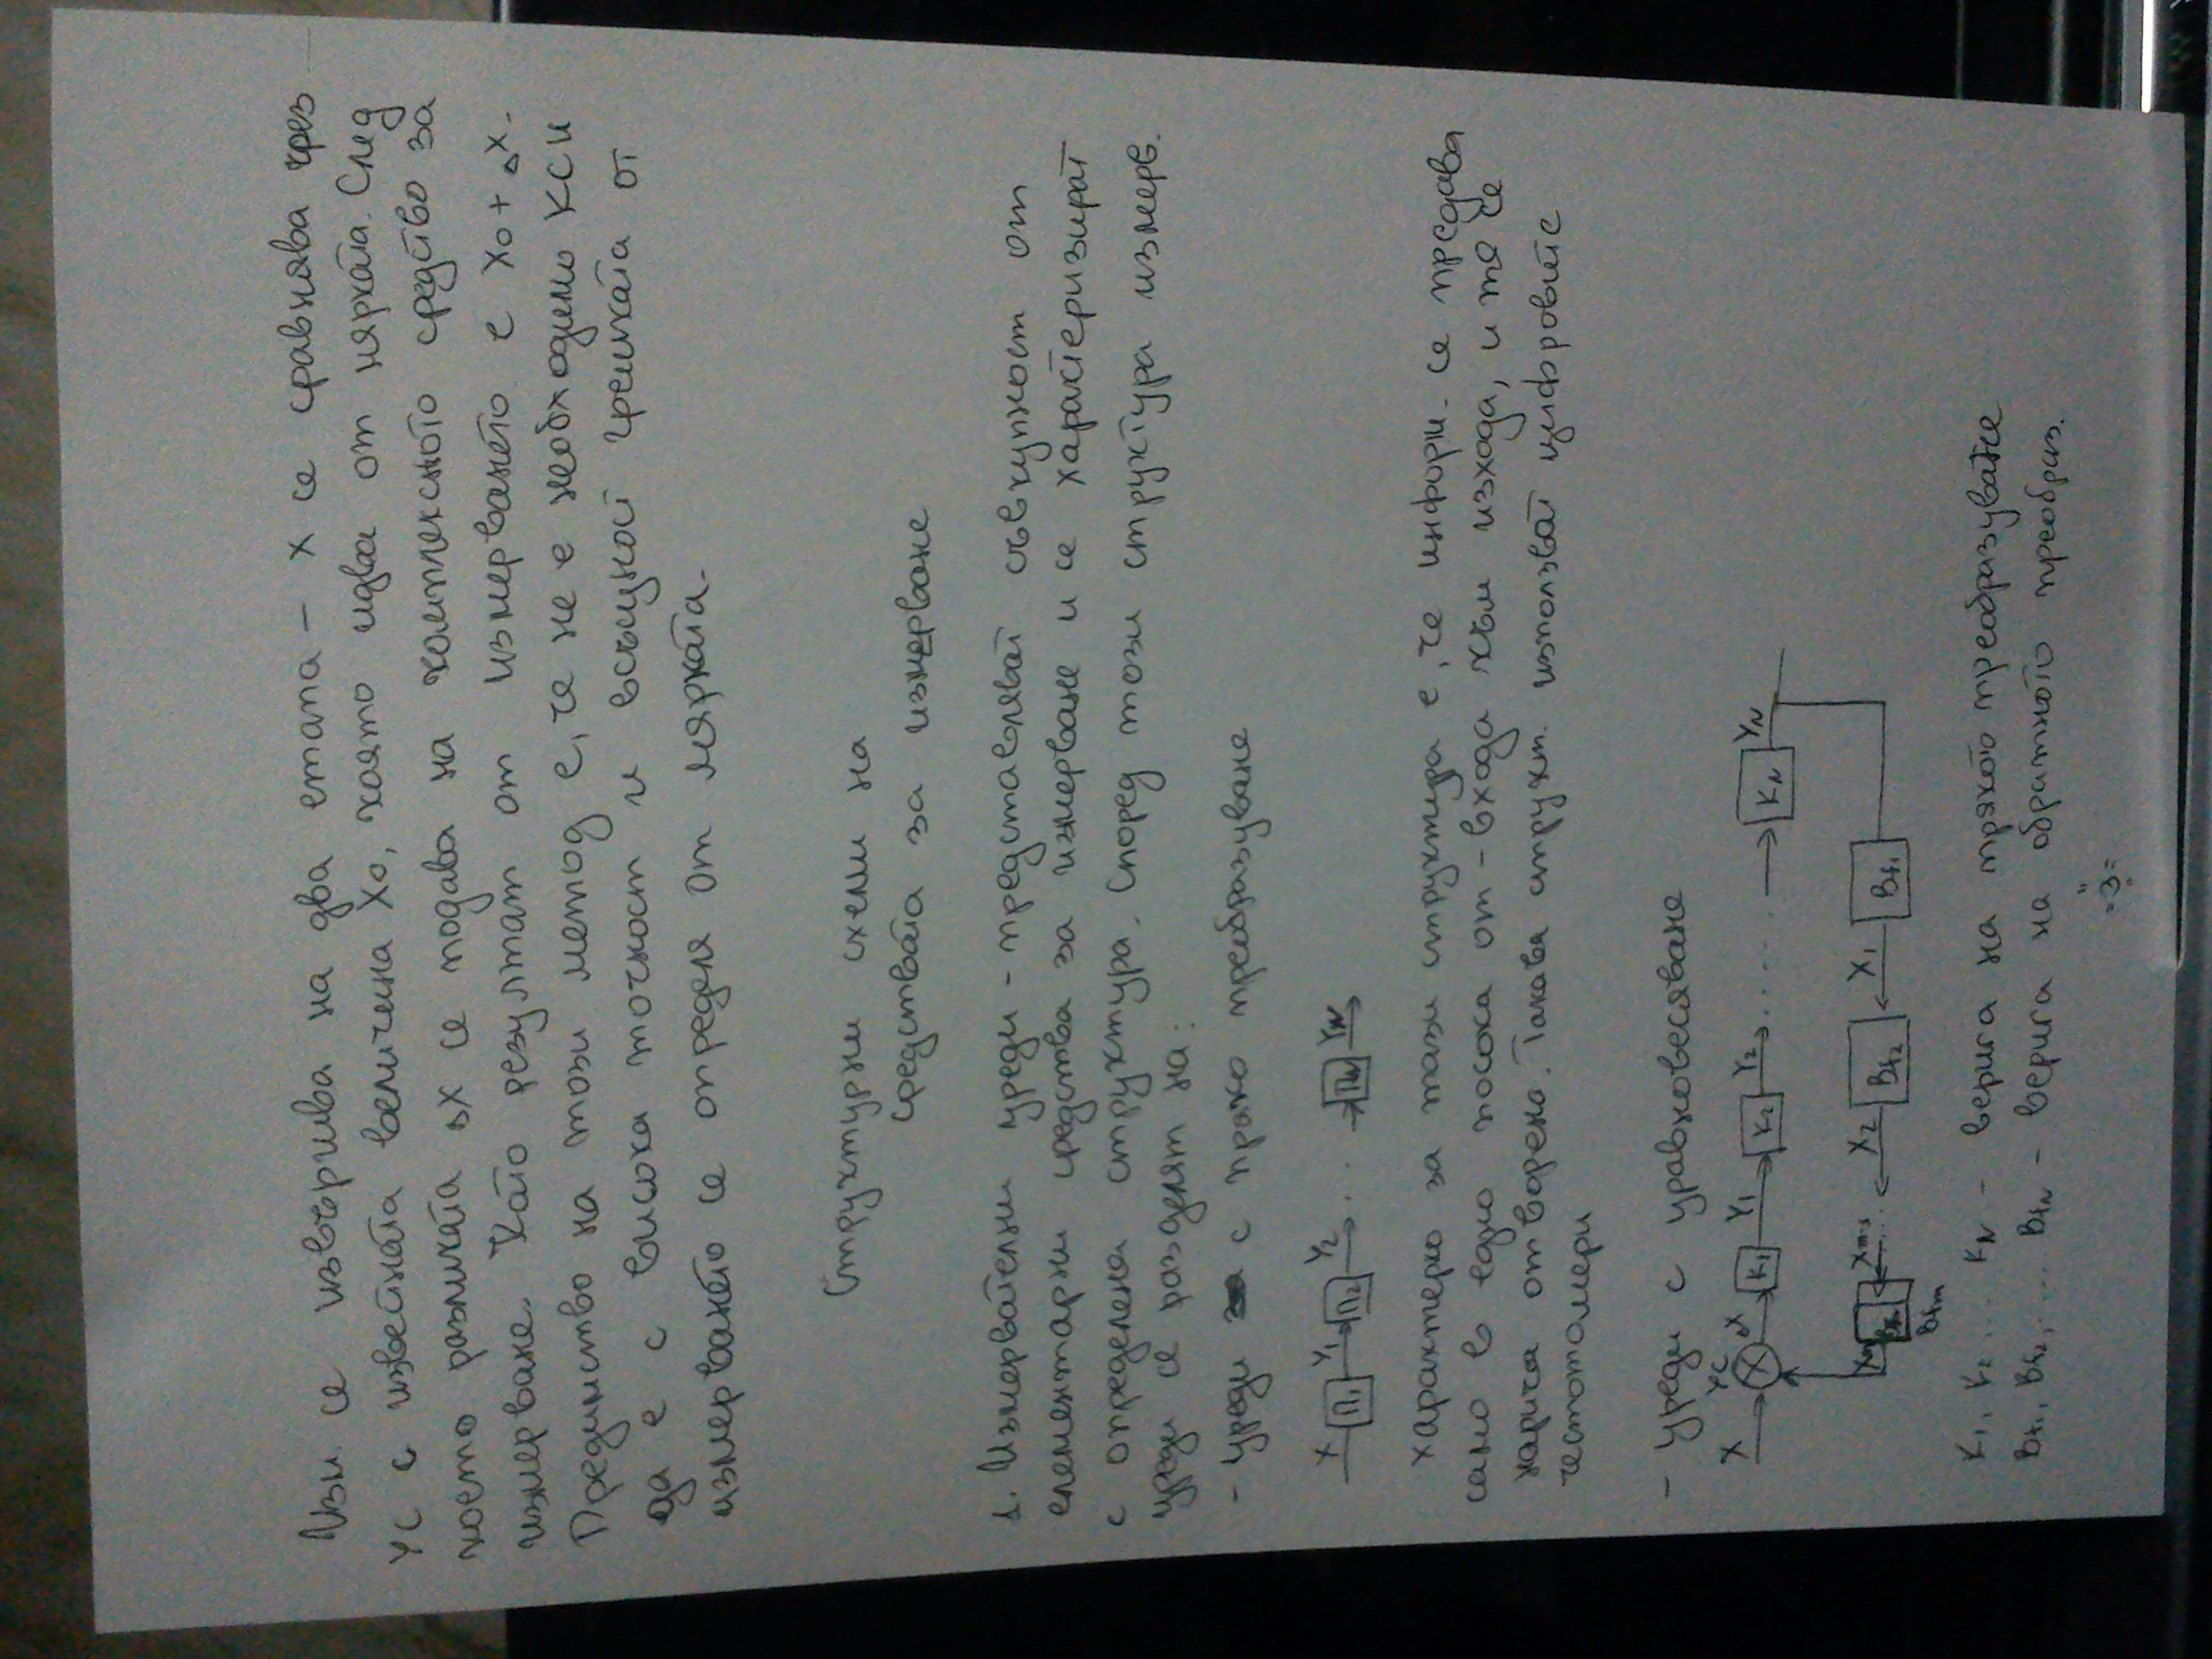 Изм се извършва на два етапа – X се сравнява чрез
УС с известната величина X0, която идва от мярката. След
което разликата ΔX се подава на комплексното средство за
измерване. Като резултат от измерването е X0 + ΔX.
Предимство на този метод е, че не е необходимо КСИ
да е с висока точност и всъщност грешката от
измерването се определя от мярката.
Структурни схеми на
средствата за измерване
1. Измервателни уреди – представляват съвкупност от
елементарни средства за измерване и се характеризират
с определена структура. Според тази структура измерв.
уреди се разделят на:
– уреди с пряко преобразуване
X П1 Y1 П2 Y2 ... Пn YN
Характерно за тази структура е, че информ. се предава
само в една посока от – входа към изхода, и тя се
нарича отворена. Такава структ. използват цифровите
честотомери
– уреди с уравновесяване
X УС ΔX K1 Y1 K2 Y2 ..... KN YN
Xm Bm Xm-1 ... X2 B2 X1 B1
K1, K2 ... KN – верига на прякото преобразуване
B1, B2, .... BN – верига на обратното преобраз.
=3=